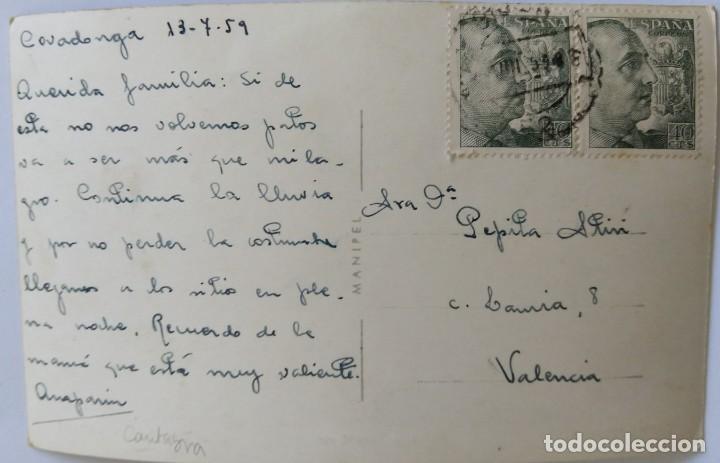 Covadonga 13-7-59
Querida familia: Si de
esta no nos volvemos patos
va a ser más que mila-
gro. Continua la lluvia
y por no perder la costumbre
llegamos a los sitios en ple-
na noche. Recuerdo de la
mamá que está muy valiente.
ESPAÑA
CORREOS
40 CTS
ESPAÑA
CORREOS
40 CTS
MANIPEL
Sra Dª
Pepita
c. Lauria, 8
Valencia
todocoleccion